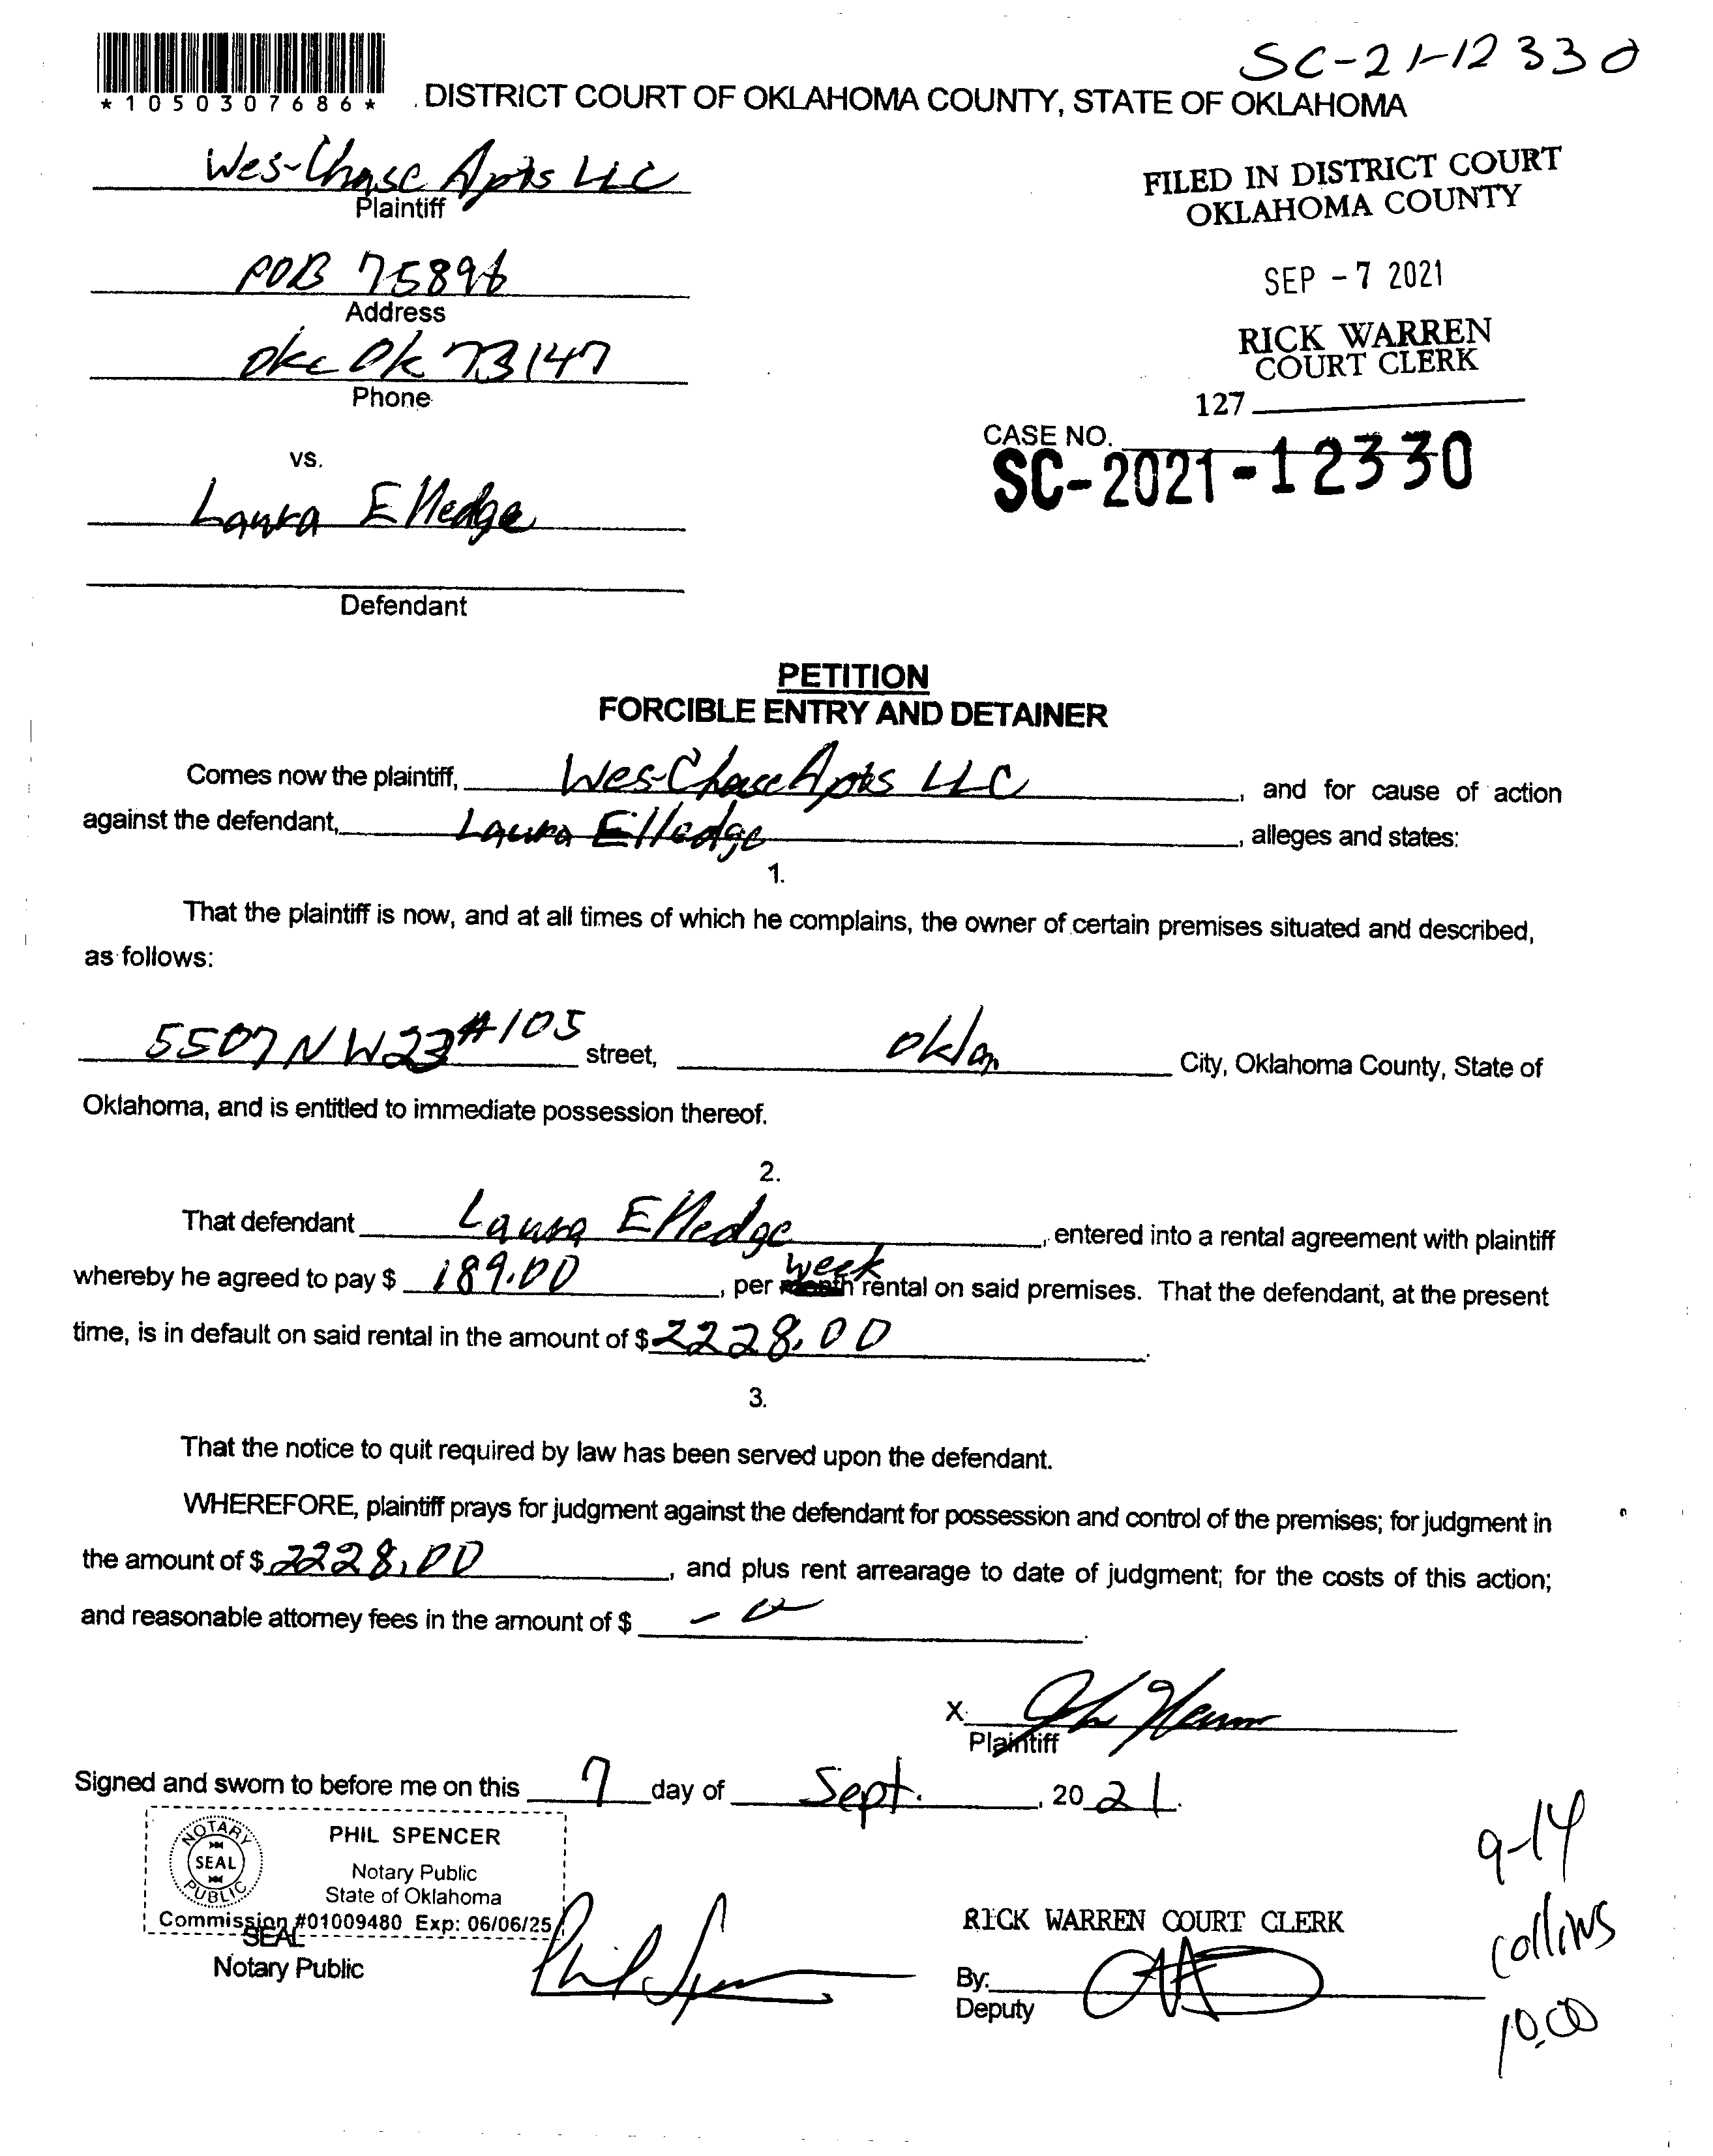 SC-21-12330
*1050307686*
DISTRICT COURT OF OKLAHOMA COUNTY, STATE OF OKLAHOMA
Wes-Chase Apts LLC
Plaintiff
FILED IN DISTRICT COURT
OKLAHOMA COUNTY
POB 75896
Address
SEP - 7 2021
Okc Ok 73147
Phone
RICK WARREN
COURT CLERK
127
CASE NO.
SC-2021-12330
vs.
Laura Elledge
Defendant
PETITION
FORCIBLE ENTRY AND DETAINER
Comes now the plaintiff, Wes-Chase Apts LLC, and for cause of action
against the defendant, Laura Elledge, alleges and states:
1.
That the plaintiff is now, and at all times of which he complains, the owner of certain premises situated and described,
as follows:
5507 NW 23 #105 street, Oklan City, Oklahoma County, State of
Oklahoma, and is entitled to immediate possession thereof.
2.
That defendant Laura Elledge, entered into a rental agreement with plaintiff
whereby he agreed to pay $ 189.00, per month week rental on said premises. That the defendant, at the present
time, is in default on said rental in the amount of $ 2228.00.
3.
That the notice to quit required by law has been served upon the defendant.
WHEREFORE, plaintiff prays for judgment against the defendant for possession and control of the premises; for judgment in
the amount of $ 2228.00, and plus rent arrearage to date of judgment; for the costs of this action;
and reasonable attorney fees in the amount of $ -0.
X
Plaintiff
Signed and sworn to before me on this 7 day of Sept., 2021.
NOTARY PUBLIC
SEAL
PHIL SPENCER
Notary Public
State of Oklahoma
Commission #01009480 Exp: 06/06/25
SEAL
Notary Public
Phil Spencer
RICK WARREN COURT CLERK
By:
Deputy
9-14
collins
10.00